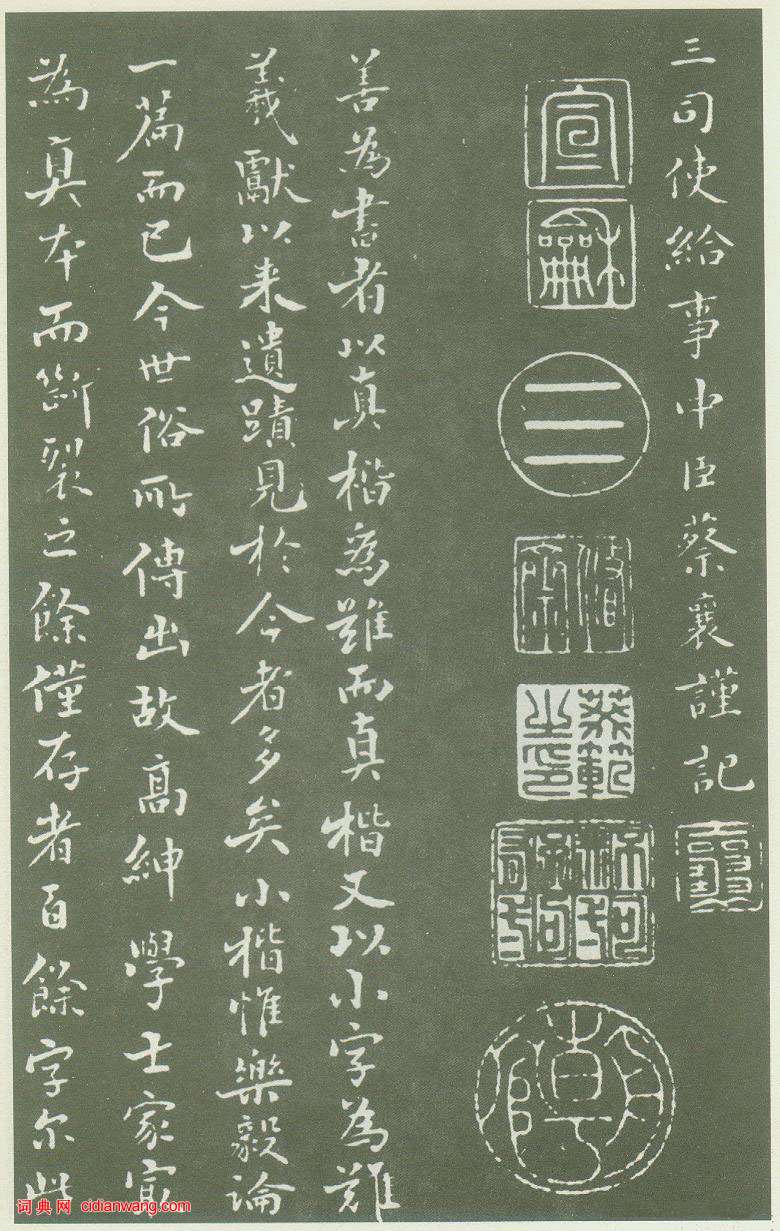 三司使給事中臣蔡襄謹記
宣
龢
蔡範之印
善為書者以真楷為難而真楷又以小字為難
羲獻以来遺蹟見於今者多矣小楷惟樂毅論
一篇而已今世俗所傳出故高紳學士家寂
為真本而斷裂之餘僅存者百餘字尔此
词典网 cidianwang.com